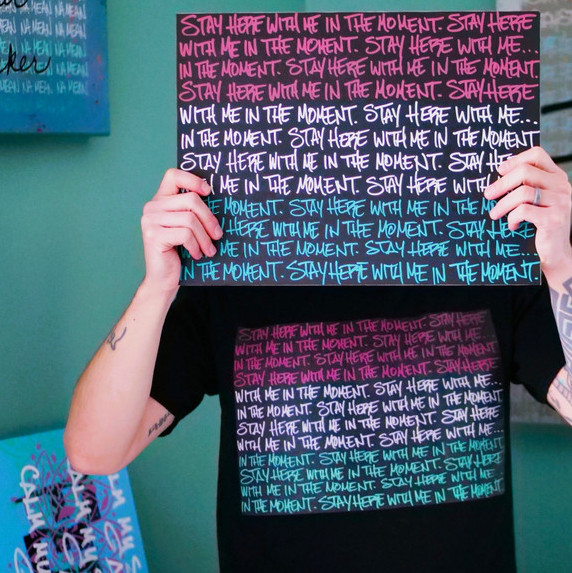 MEAN NA MEAN
ker
NA MEAN. NA MEAN. NA MEAN.
STAY HERE WITH ME IN THE MOMENT. STAY HERE
WITH ME IN THE MOMENT. STAY HERE WITH ME...
IN THE MOMENT. STAY HERE WITH ME IN THE MOMENT.
STAY HERE WITH ME IN THE MOMENT. STAY HERE
WITH ME IN THE MOMENT. STAY HERE WITH ME...
IN THE MOMENT. STAY HERE WITH ME IN THE MOMENT
STAY HERE WITH ME IN THE MOMENT. STAY HE
ME IN THE MOMENT. STAY HERE WITH
MOMENT. STAY HERE WITH ME IN THE MO
HERE WITH ME IN THE MOMENT. STAY HERE
ME IN THE MOMENT. STAY HERE WITH ME...
IN THE MOMENT. STAY HERE WITH ME IN THE MOMENT.
STAY HERE WITH ME IN THE MOMENT. STAY HERE
WITH ME IN THE MOMENT. STAY HERE WITH ME...
IN THE MOMENT. STAY HERE WITH ME IN THE MOMENT.
STAY HERE WITH ME IN THE MOMENT. STAY HERE
WITH ME IN THE MOMENT. STAY HERE WITH ME...
IN THE MOMENT. STAY HERE WITH ME IN THE MOMENT
STAY HERE WITH ME IN THE MOMENT. STAY HERE
WITH ME IN THE MOMENT. STAY HERE WITH ME...
IN THE MOMENT. STAY HERE WITH ME IN THE MOMENT.
STAY HERE WITH ME IN THE MOMENT. STAY HERE
WITH ME IN THE MOMENT. STAY HERE WITH ME...
IN THE MOMENT. STAY HERE WITH ME IN THE MOMENT.
CALM MY
CALM MY
CALM MY S